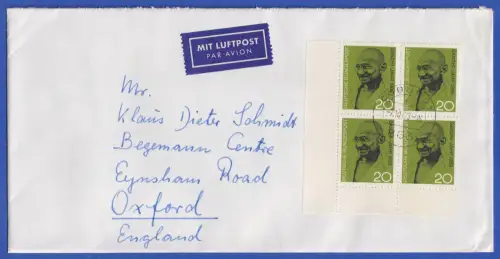 MIT LUFTPOST
PAR AVION
Mr.
Klaus Dieter Schmidt
Begemann Centre
Eynsham Road
Oxford
England
20
20
20
20